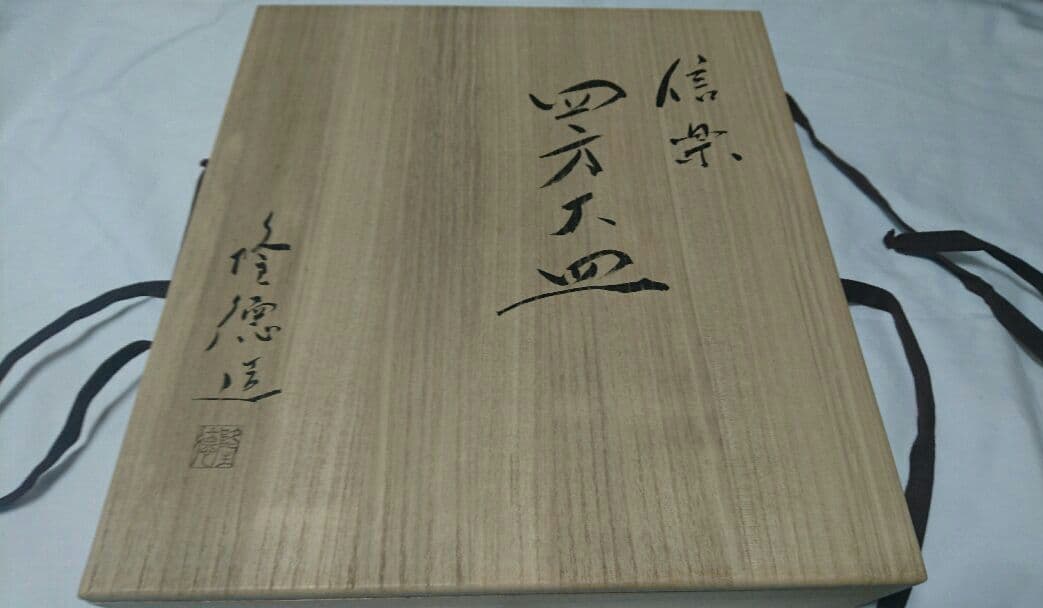 信楽
四方大皿
隆德造